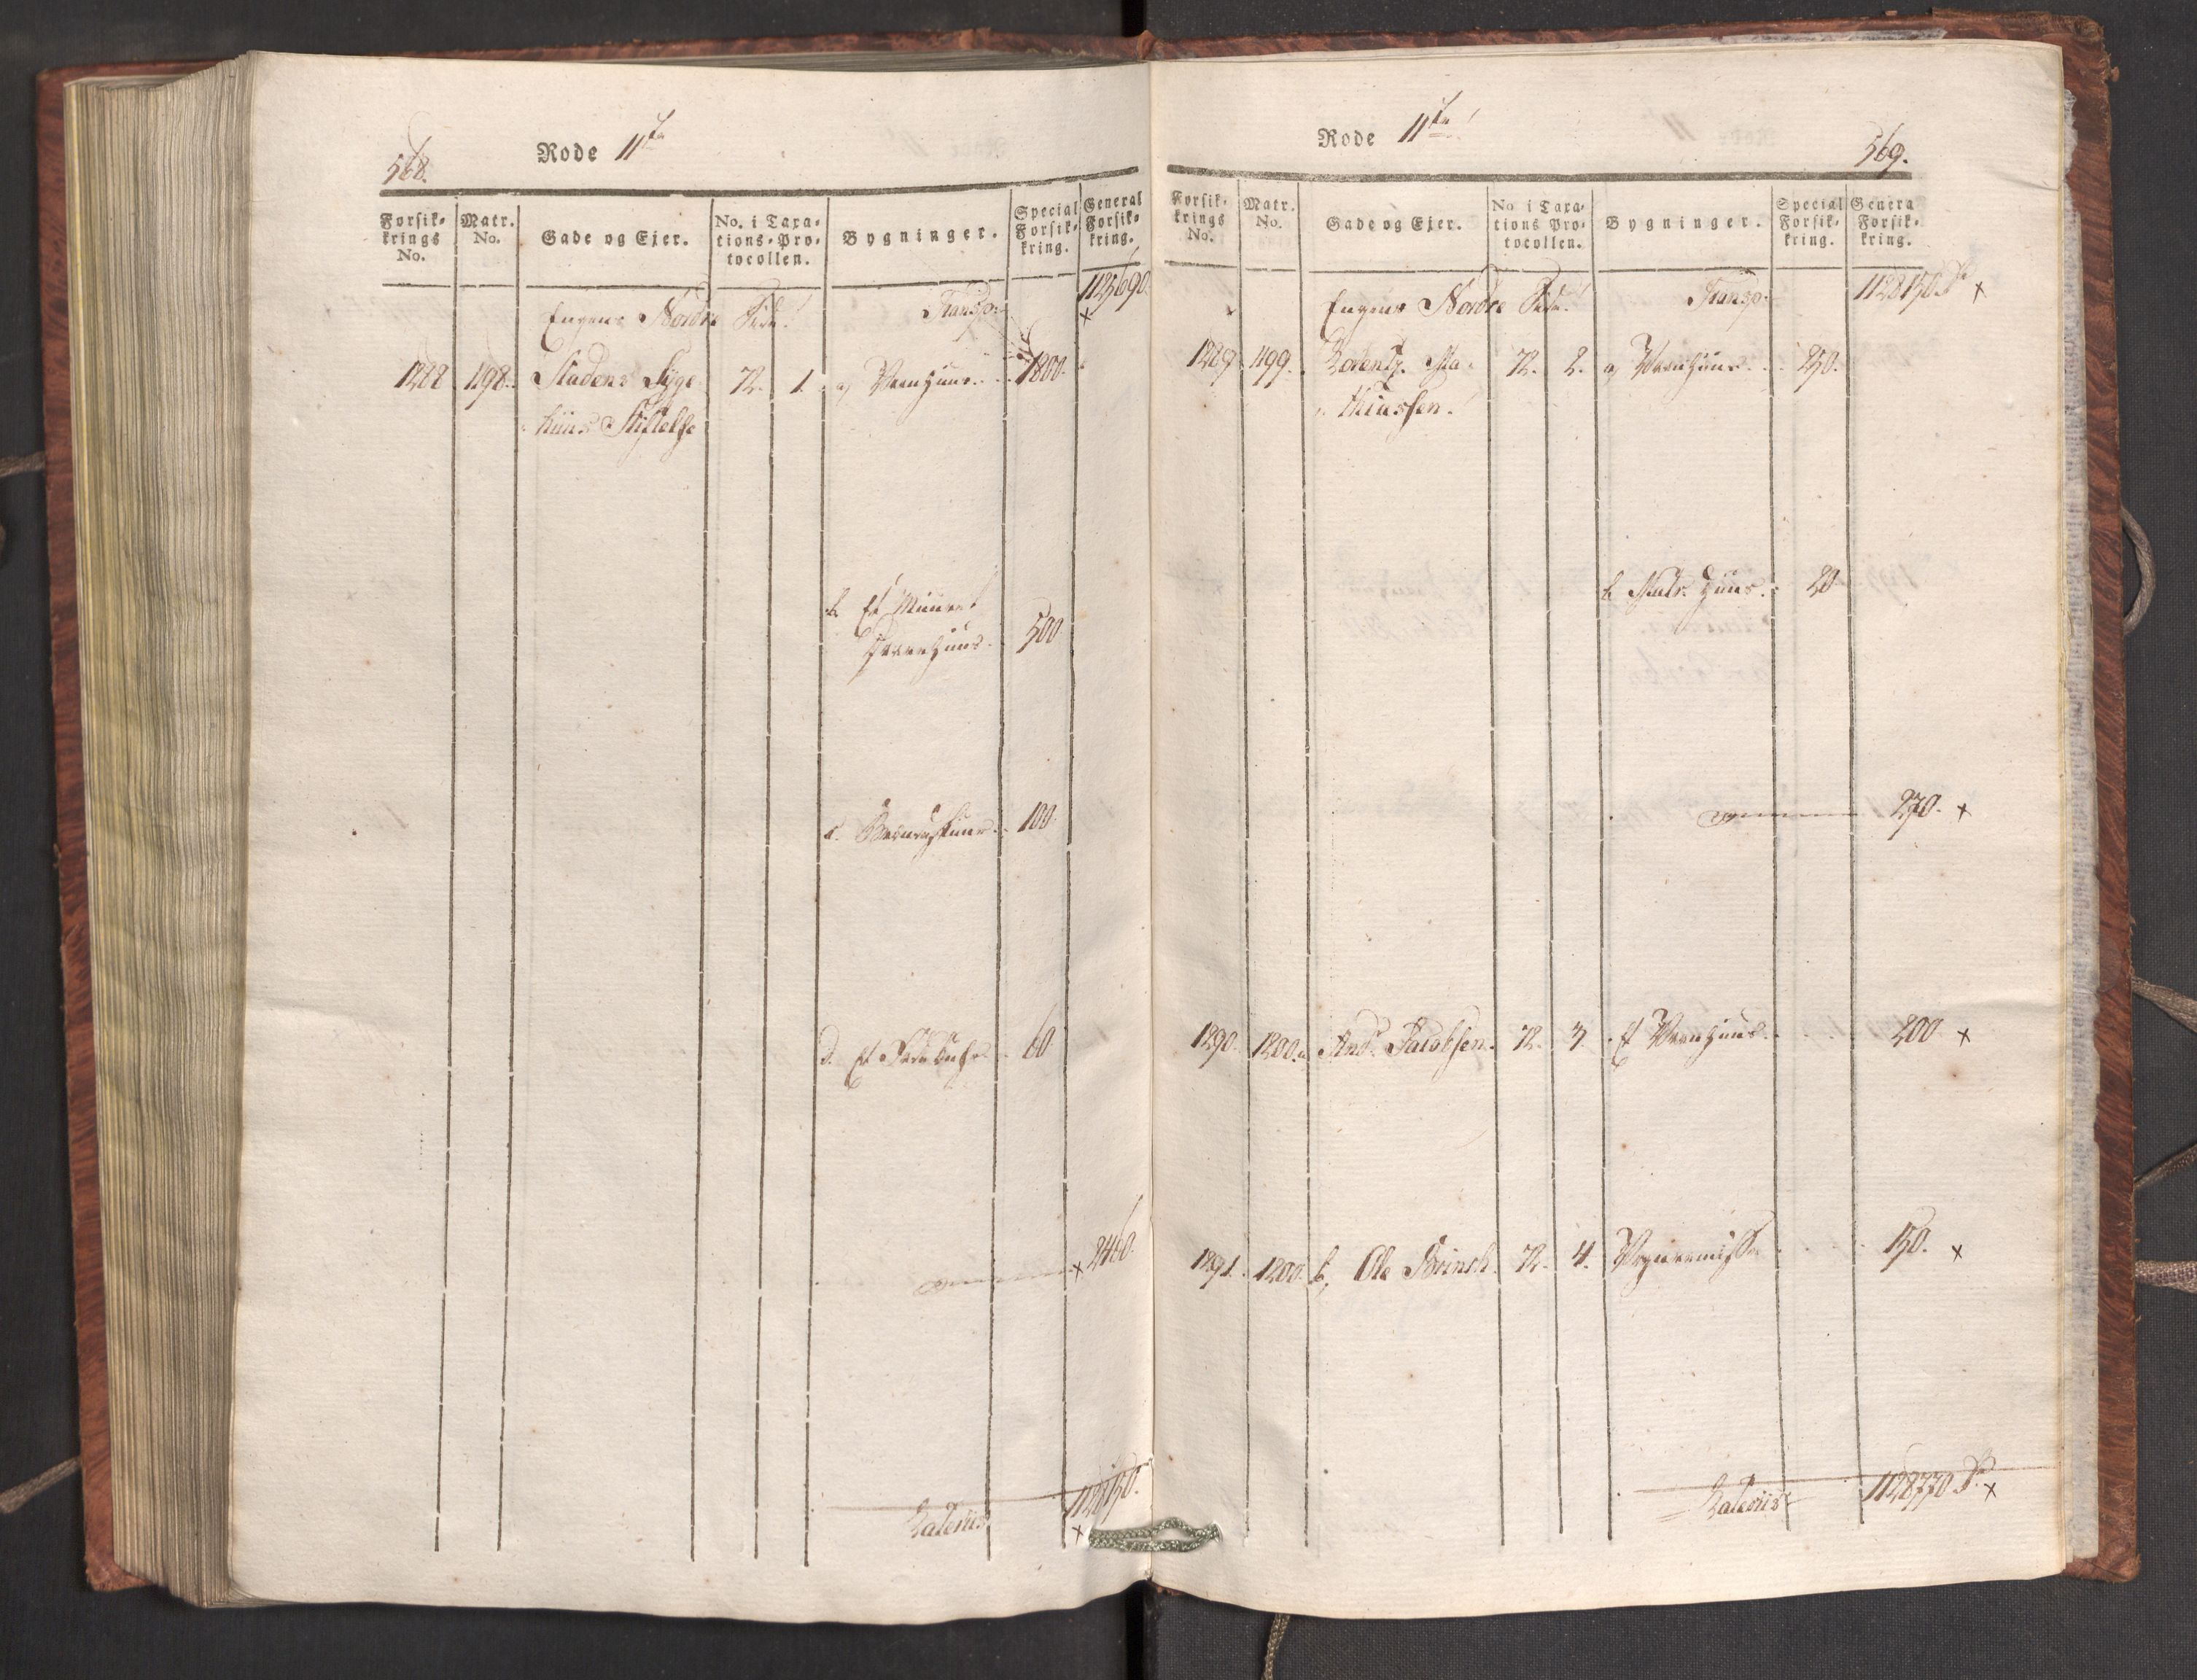 568.
Rode 11te
Forsik-
krings
No.
Matr.
No.
Gade og Ejer.
No. i Taxa-
tions-Pro-
tocollen.
Bygninger.
Special
Forsik-
kring.
General
Forsik-
kring.
Engens Nordre Side. Transp. 1125690.
1288 1198. Stadens Syge- 72. 1. a, Vaanhuus. 1800.
huus Stiftelse
b. Et Muuret
500
c. 100.
d. Et 60
2460.
Lateriis 1128150.
Rode 11te
569.
Forsik-
krings
No.
Matr.
No.
Gade og Ejer.
No i Taxa-
tions Pro-
tocollen.
Bygninger.
Special
Forsik-
kring.
Genera
Forsik-
kring.
Engens Nordre Side. Transp. 1128150
1289 1199. Lorentz Ma- 72. 2. a, Vaanhuus. 250.
thiassen.
b huus. 20
270.
1290. 1200.a And. Jacobsen. 72. 3. Et Vaanhuus. 200
1291. 1200. b, Ole Brinch. 72. 4. 150.
Lateriis 1128770